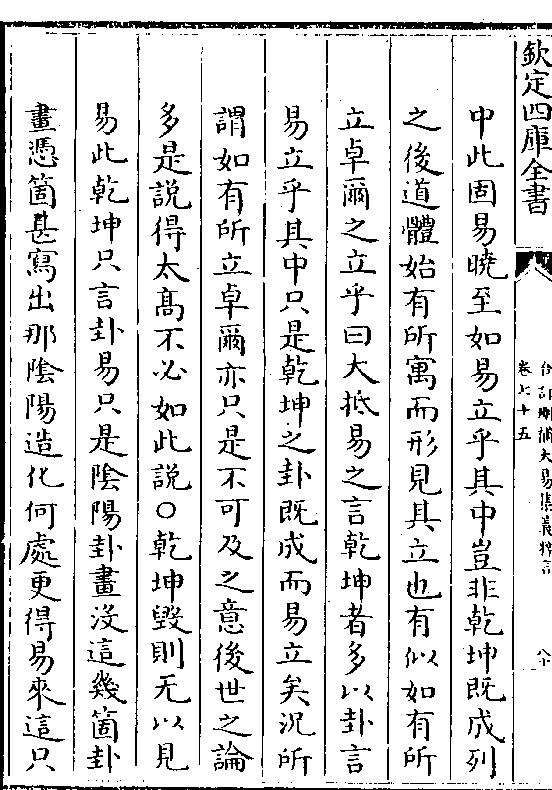 欽定四庫全書
合訂刪補大易集義粹言
卷七十五
中此固易曉至如易立乎其中豈非乾坤既成列
之後道體始有所寓而形見其立也有似如有所
立卓爾之立乎曰大抵易之言乾坤者多以卦言
易立乎其中只是乾坤之卦既成而易立矣況所
謂如有所立卓爾亦只是不可及之意後世之論
多是說得太髙不必如此說○乾坤毀則无以見
易此乾坤只言卦易只是陰陽卦畫沒這幾箇卦
畫憑箇甚寫出那陰陽造化何處更得易來這只